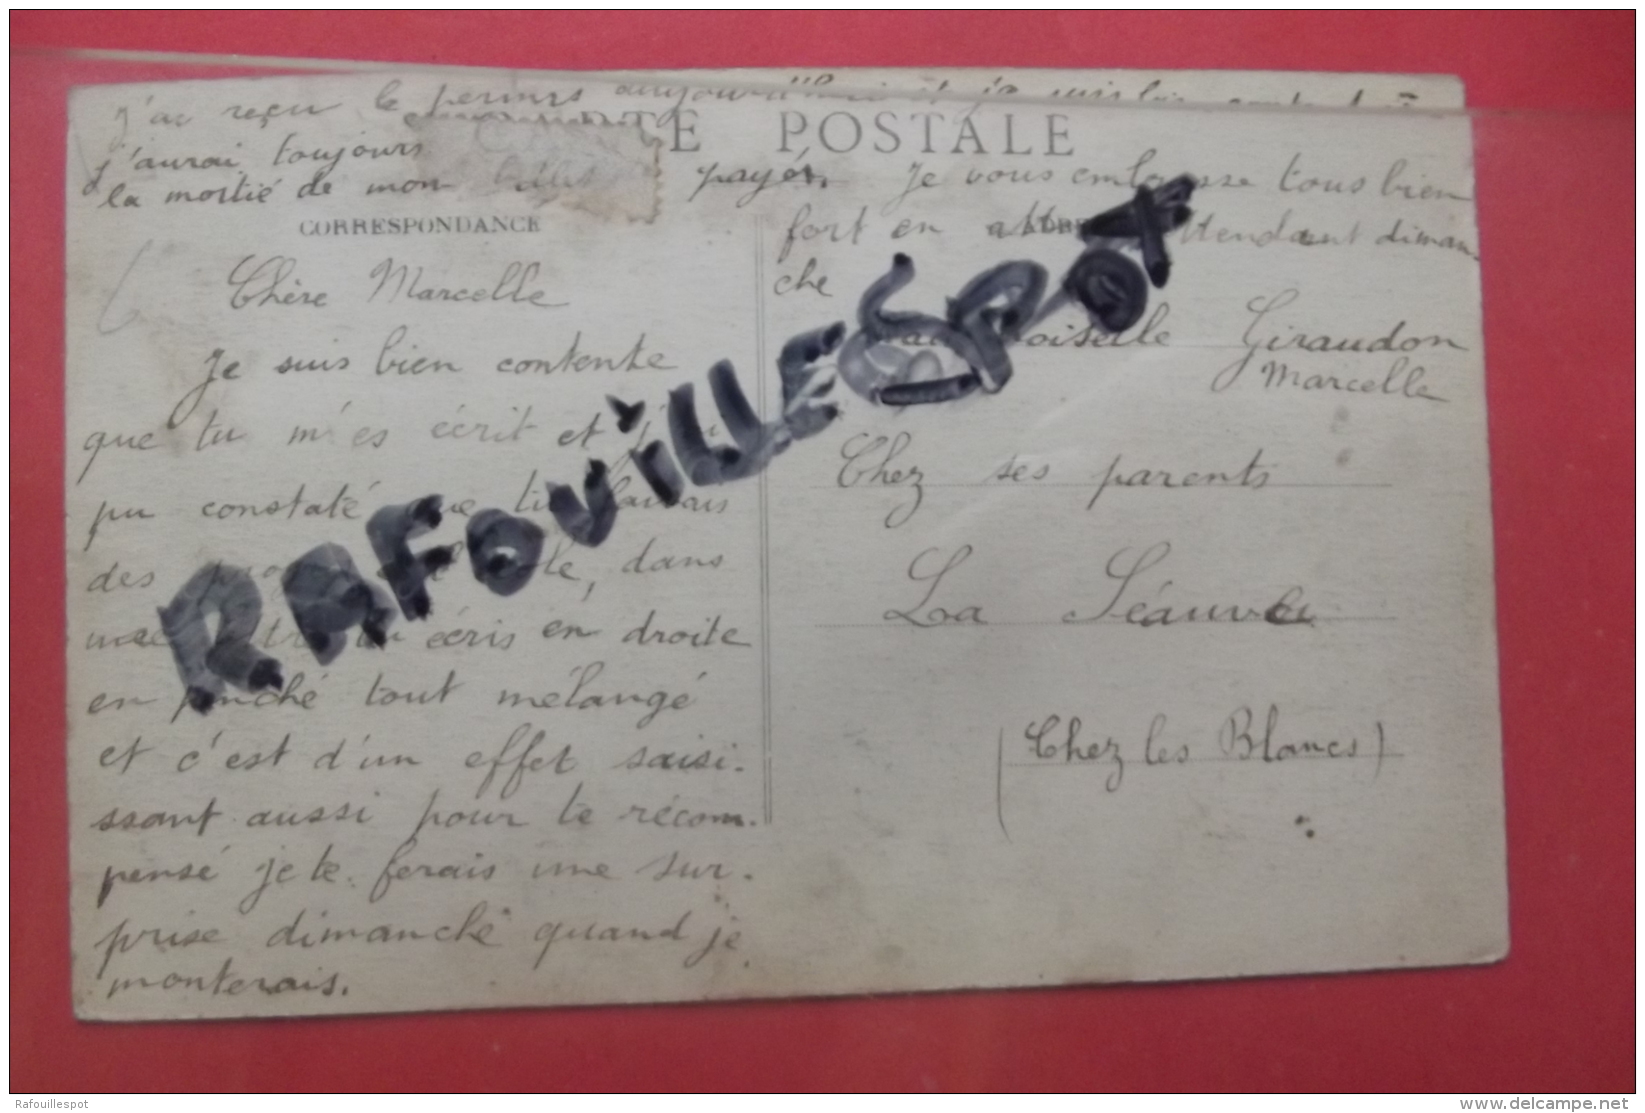 j'ai reçu le permis aujourd'hui et je suis
j'aurai toujours
la mortié de mon payér. Je vous embrasse tous bien
fort en attendant diman
che
POSTALE
CORRESPONDANCE
Chère Marcelle
Je suis bien contente
que tu m'es écrit et j'ai
pu constaté que tu faisais
des dans
une écris en droite
en penché tout mélangé
et c'est d'un effet saisi-
ssant aussi pour te récom-
pensé je te ferais une sur-
prise dimanche quand je
monterais.
Mademoiselle Giraudon
Marcelle
Chez ses parents
La Séauve
(Chez les Blancs)
RAFOUILLESPOT
Rafouillespot
www.delcampe.net